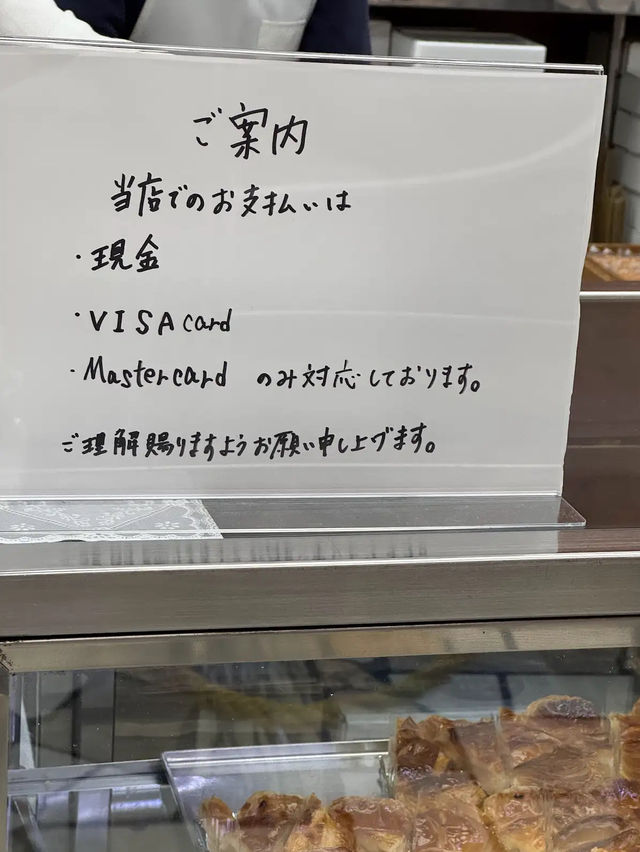 ご案内
当店でのお支払いは
・現金
・VISA card
・Mastercard のみ対応しております。
ご理解賜りますようお願い申し上げます。